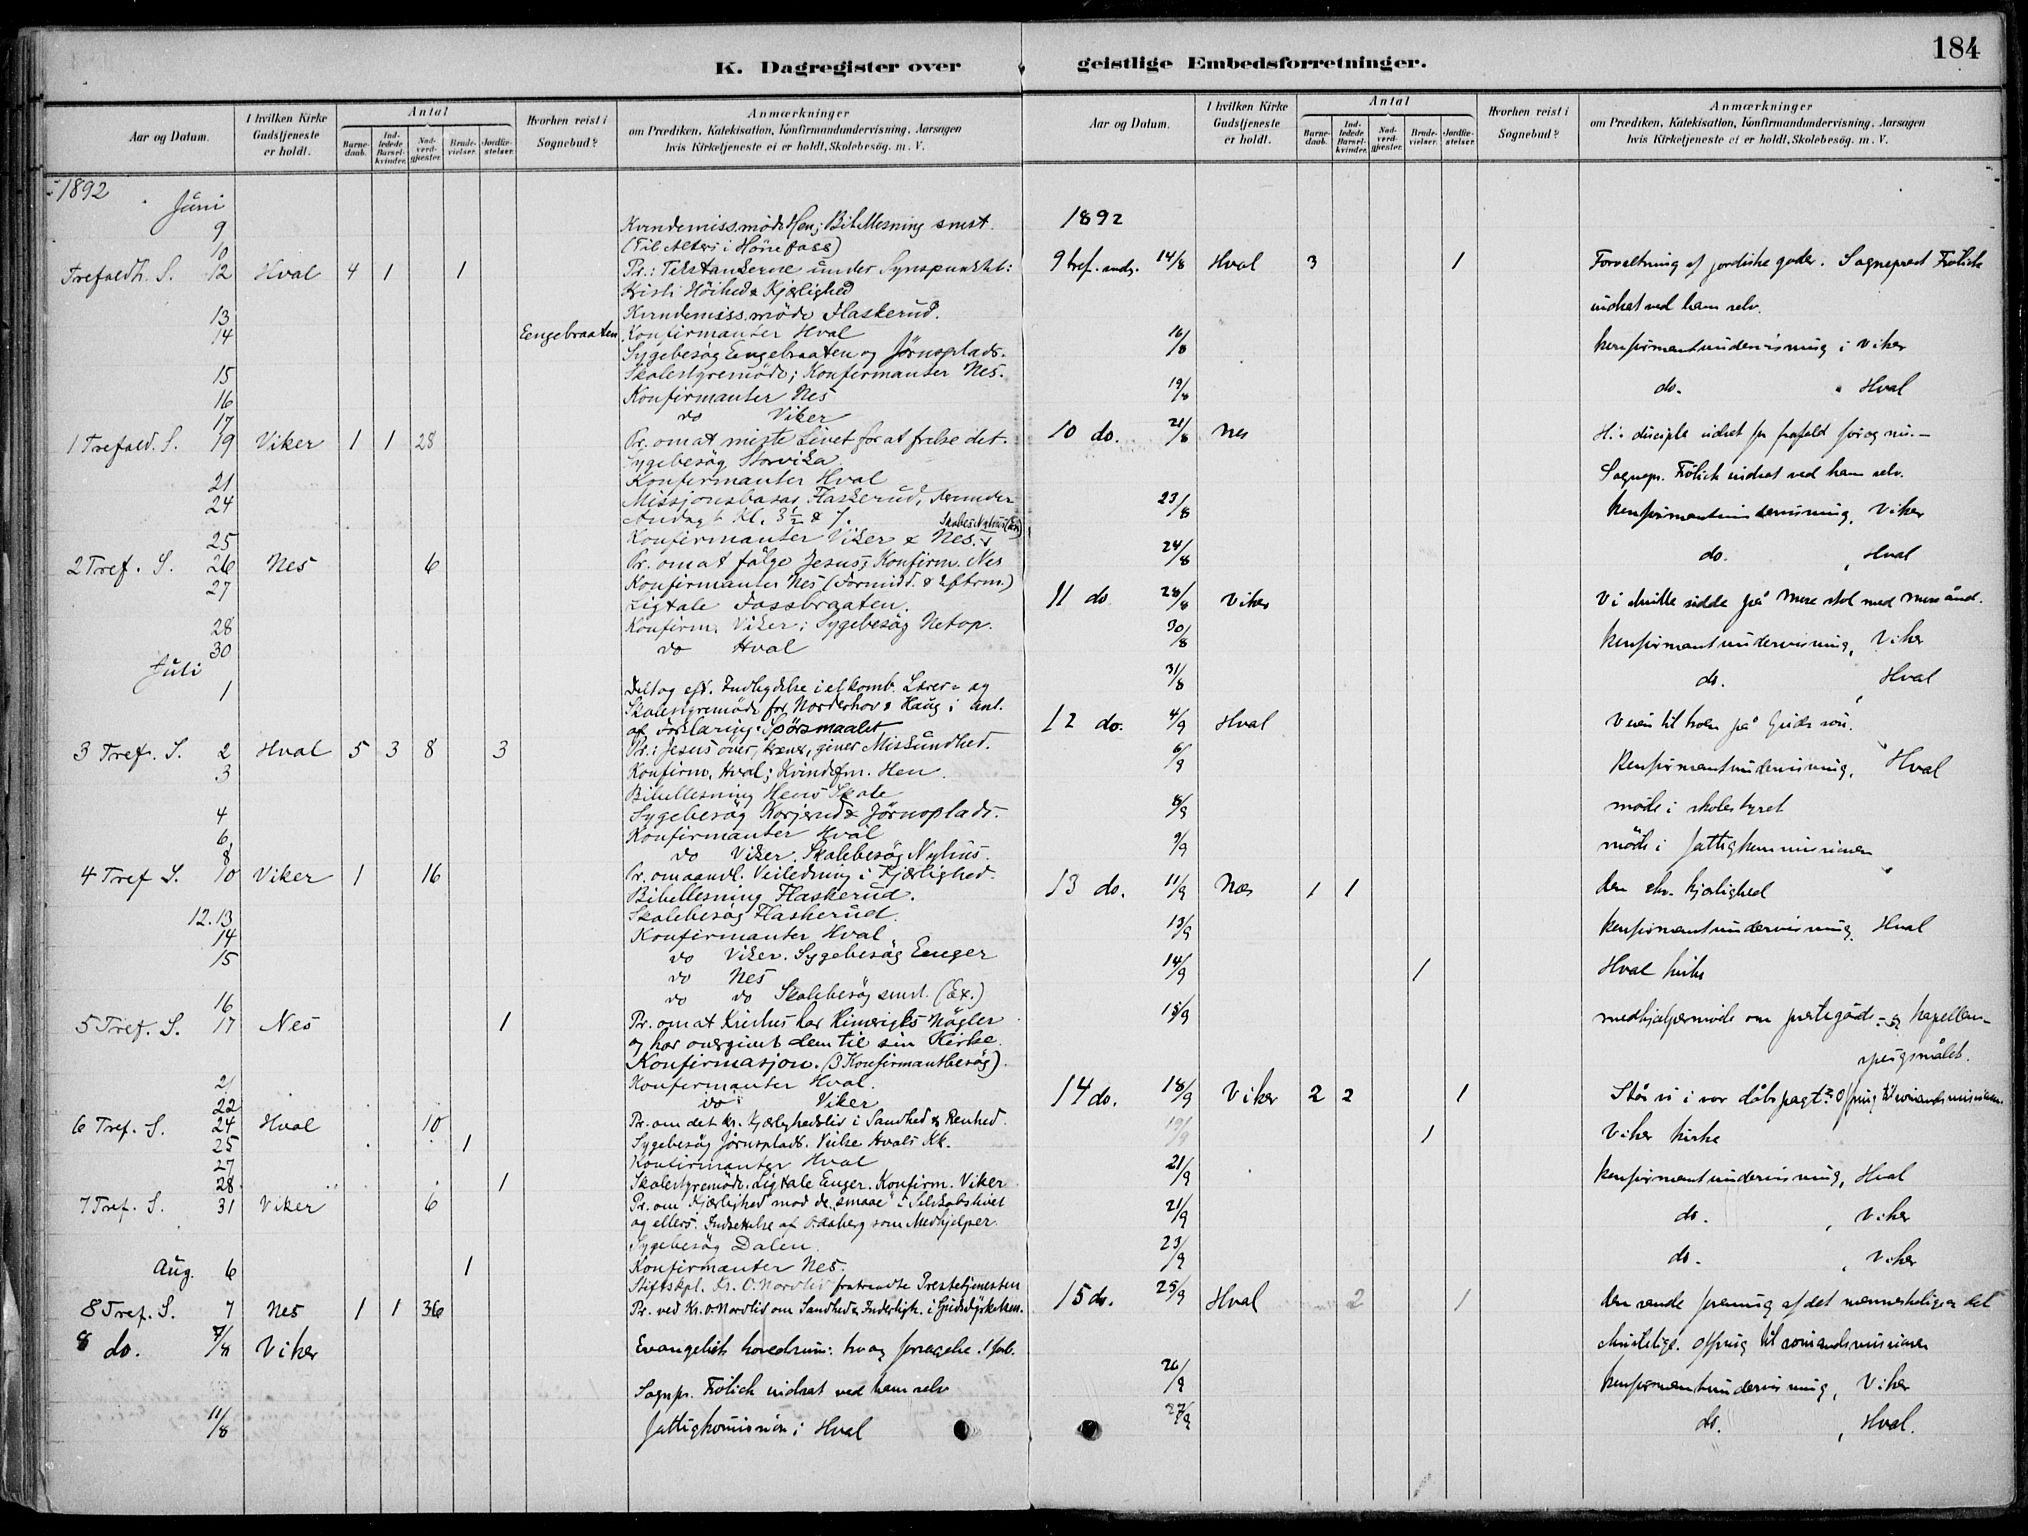 184
K. Dagregister over geistlige Embedsforretninger.
Aar og Datum.
I hvilken Kirke Gudstjeneste er holdt.
Antal
Barnedaab.
Indledede Barselkvinder.
Nadverdgjester.
Brudevielser.
Jordfæstelser.
Hvorhen reist i Sognebud?
Anmærkninger
om Prædiken, Katekisation, Konfirmandundervisning, Aarsagen
hvis Kirketjeneste ei er holdt, Skolebesøg. m. V.
1892
Juni
9 Kvindemiss.møde Hen; Bibellesning smst.
10 (Til Alters i Hönefoss)
Trefoldh. S. 12 Hval 4 1 1 Pr.: Tekstankerne under Synspunktet:
Kristi Höihed & Kjærlighed
13 Kvindemiss.møde Flaskerud.
14 Eengebraaten Konfirmanter Hval
Sygebesøg Eengebraaten og Jørnsplads.
15 Skolestyremöde; Konfirmanter Nes.
16 Konfirmanter Nes
17 do Viker
1 Trefold. S. 19 Viker 1 1 28 Pr. om at miste Livet for at frelse det.
Sygebesøg Storvika
21 Konfirmanter Hval
24 Missjonsbasar Flaskerud, derunder
Andagt Kl. 3½ & 7.
25 Konfirmanter Viker & Nes.
2 Tref. S. 26 Nes 6 Pr. om at følge Jesus; Konfirm. Nes
27 Konfirmanter Nes (Formidd. & Eftrm.)
Ligtale Fossbraaten.
28 Konfirm. Viker; Sygebesøg Netop.
30 do Hval
Juli
1 Deltog eft. Indbydelse i et komb. Lærer- og
Skolestyremöde for Norderhov & Haug i Anl.
af Forklarings-Spörsmaalet
3 Tref. S. 2 Hval 5 3 8 3 Pr.: Jesus över, kræver, giver Miskundhed.
3 Konfirm. Hval; Kvindefm. Hen.
Bibellesning Hens Skole
4 Sygebesøg Korjerud & Jörnsplads.
6 Konfirmanter Hval
8 do Viker. Skolebesøg Nyhus.
4 Tref S. 10 Viker 1 16 Pr. om aandl. Veiledning i Kjærlighed.
Bibellesning Flaskerud.
12.13 Skolebesøg Flaskerud.
14 Konfirmanter Hval
15 do Viker. Sygebesøg Eenger
do Nes
16 do do Skolebesøg smst. (Ex.)
5 Tref. S. 17 Nes 1 Pr. om at Kristus har Himerigts Nøgler
og har overgivet dem til sin Kirke.
Konfirmasjon. (3 Konfirmantbesøg).
21 Konfirmanter Hval.
22 do Viker
6 Tref. S. 24 Hval 10 Pr. om det kr. Kjærlighedsliv i Sandhed & Renhed.
25 1 Sygebesøg Jørnsplads. Vielse Hvals Kk.
27 Konfirmanter Hval
28 1 Skolestyremöde. Ligtale Enger. Konfirm. Viker
7 Tref. S. 31 Viker 6 Pr. om Kjærlighed mod de "smaae" i Selskabslivet
og ellers. Indsettelse af O. Aaberg som Medhjelper.
Sygebesøg Dalen.
Aug. 6 1 Konfirmanter Nes.
Stiftskpl. Kr. O. Nordlid fratraadte Prestetjenesten
8 Tref. S. 7 Nes 1 1 36 Pr. ved Kr. O. Nordlid om Sandhed & Inderligh. i Gudsdyrkelsen.
8 do. 7/8 Viker Evangeliets hovedsum: tro og forsagelse. 1 forb.
Sognpr. Frölich indsat ved ham selv
11/8 Fattigkomission i Hval
1892
9 tref. sndg. 14/8 Hval 3 1 Forvaltning af jordiske goder. Sogneprest Frölich
indsat ved ham selv.
16/8 Konfirmantundervisning i Viker
19/8 do. " Hval
10 do. 21/8 Nes H.: disciple udsat for frafald før og nu. —
Sognepr. Frölich indsat ved ham selv.
23/8 Konfirmantundervisning, Viker
24/8 do. , Hval
11 do 28/8 Viker Vi skulle sidde på Mose stol med Mose ånd.
30/8 Konfirmantundervisning, Viker
31/8 do. , Hval
12 do. 4/9 Hval Veien til troen på Guds søn.
6/9 Konfirmantundervisning, Hval
8/9 møde i skolestyret
9/9 möde i Fattigkommissionen
13 do. 11/9 Næs 1 1 den chr. kjærlighed
13/9 Konfirmantundervisning. Hval
14/9 1 Hval kirke
15/9 medhjælpermöde om prestegårds- og kapellan-
spørgsmålet.
14 do. 18/9 Viker 2 2 1 Står vi i vor dåbspagt? Ofring til sømandsmissionen.
19/9 1 Viker kirke
21/9 Konfirmantundervisning, Hval
21/9 do. , Viker
23/9 do. , Viker
15 do. 25/9 Hval 2 1 Den sande forening af det menneskelige og det
christelige. Ofring til sømandsmissionen
26/9 Konfirmantundervisning, Viker
27/9 do. , Hval.